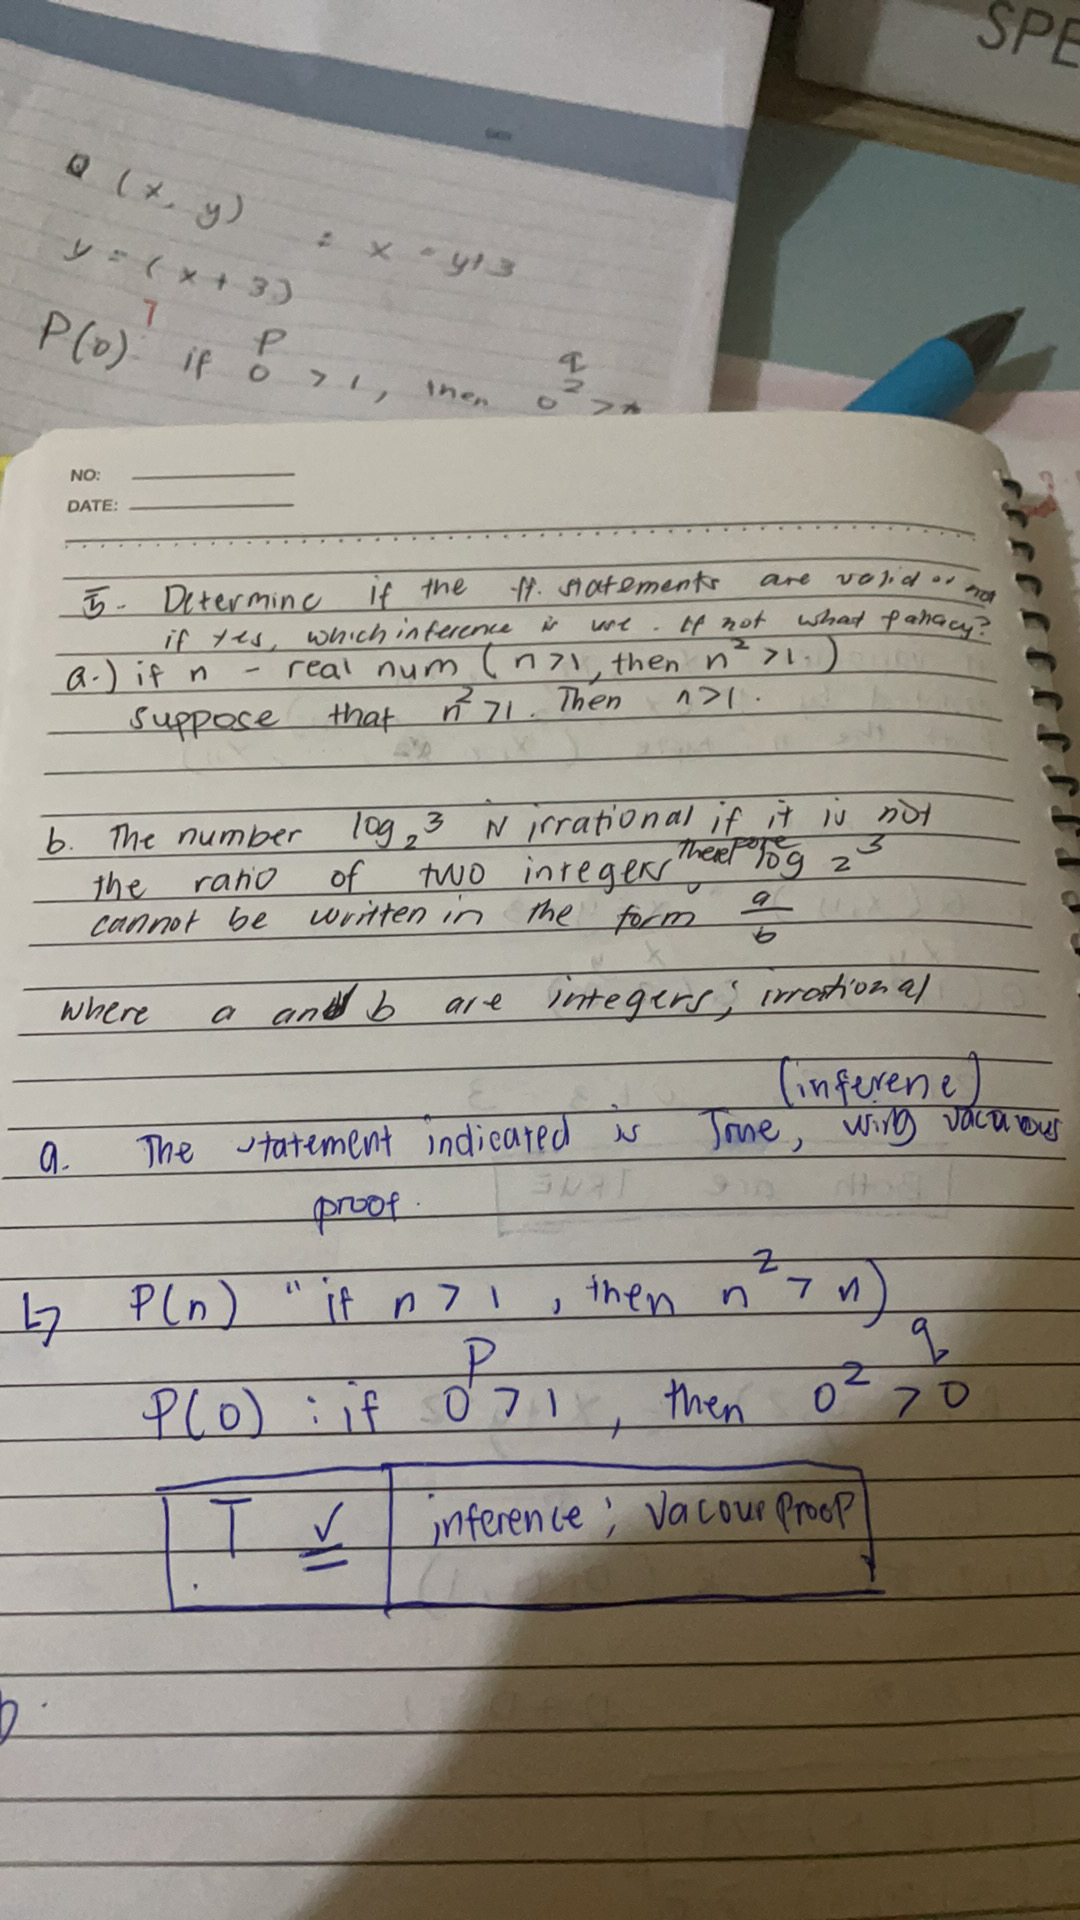 SPE
Q (x, y) : x = y+3
y = (x + 3)
P(0): if 0 > 1, then 0² >
p q
NO:
DATE:
5. Determine if the ff. statements are valid or not
if yes, which inference is use. If not what fallacy?
a.) if n - real num (n>1, then n² >1.)
suppose that n²>1. Then n>1.
b. The number log₂3 is irrational if it is not
the ratio of two integers Therefore log 2³
cannot be written in the form a/b
where a and b are integers; irrational
(inferene)
a. The statement indicated is True, using vacauous
proof.
↳ P(n) "if n > 1, then n² > n)
p q
P(0) : if 0 > 1, then 0² > 0
T ✓ inference; Vacour Proof
b.